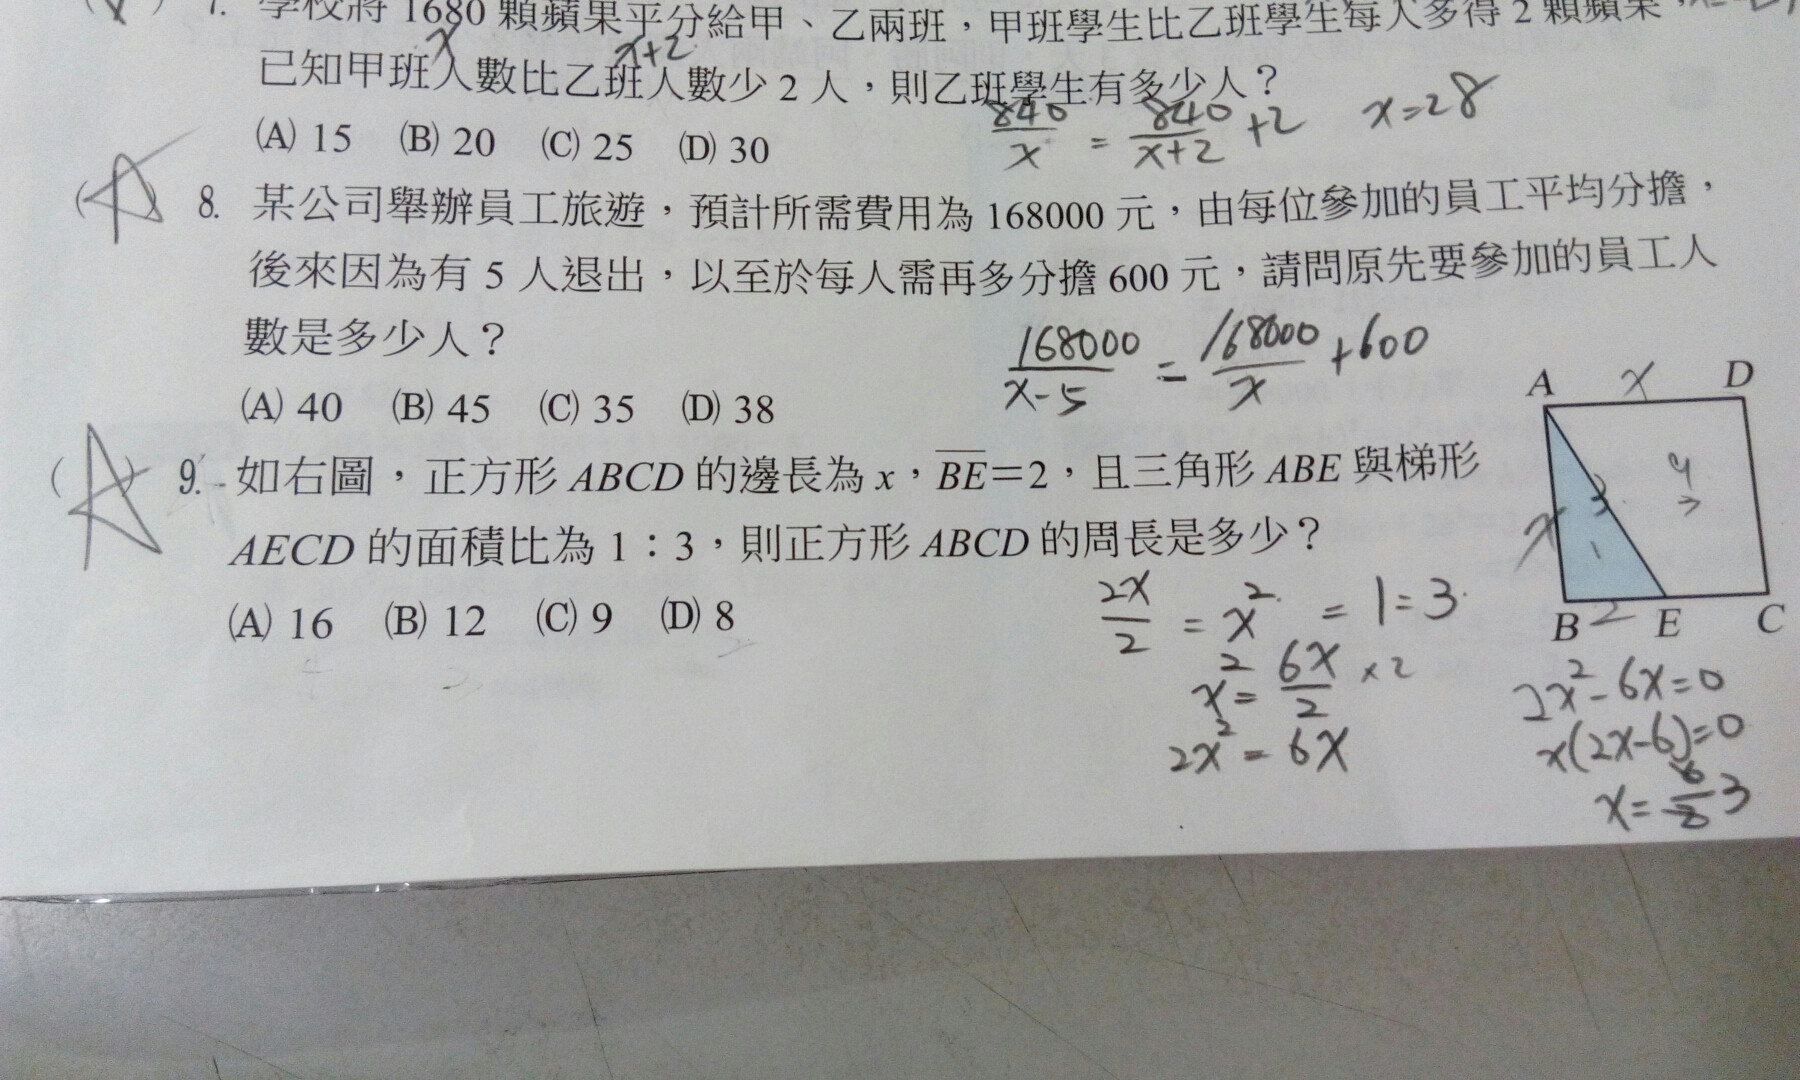 7. 學校將 1680 顆蘋果平分給甲、乙兩班，甲班學生比乙班學生每人多得 2 顆蘋果，
x x+2
已知甲班人數比乙班人數少 2 人，則乙班學生有多少人？
840/x = 840/x+2 +2 x=28
(A) 15 (B) 20 (C) 25 (D) 30
(A) 8. 某公司舉辦員工旅遊，預計所需費用為 168000 元，由每位參加的員工平均分擔，
後來因為有 5 人退出，以至於每人需再多分擔 600 元，請問原先要參加的員工人
數是多少人？
168000/x-5 = 168000/x +600
(A) 40 (B) 45 (C) 35 (D) 38
(A) 9. 如右圖，正方形 ABCD 的邊長為 x，BE=2，且三角形 ABE 與梯形
AECD 的面積比為 1：3，則正方形 ABCD 的周長是多少？
(A) 16 (B) 12 (C) 9 (D) 8
A x D
x 3 1
B 2 E C
2x/2 = x² = 1=3
x² = 6x/2 ×2
2x² = 6x
2x²-6x=0
x(2x-6)=0
x= 3